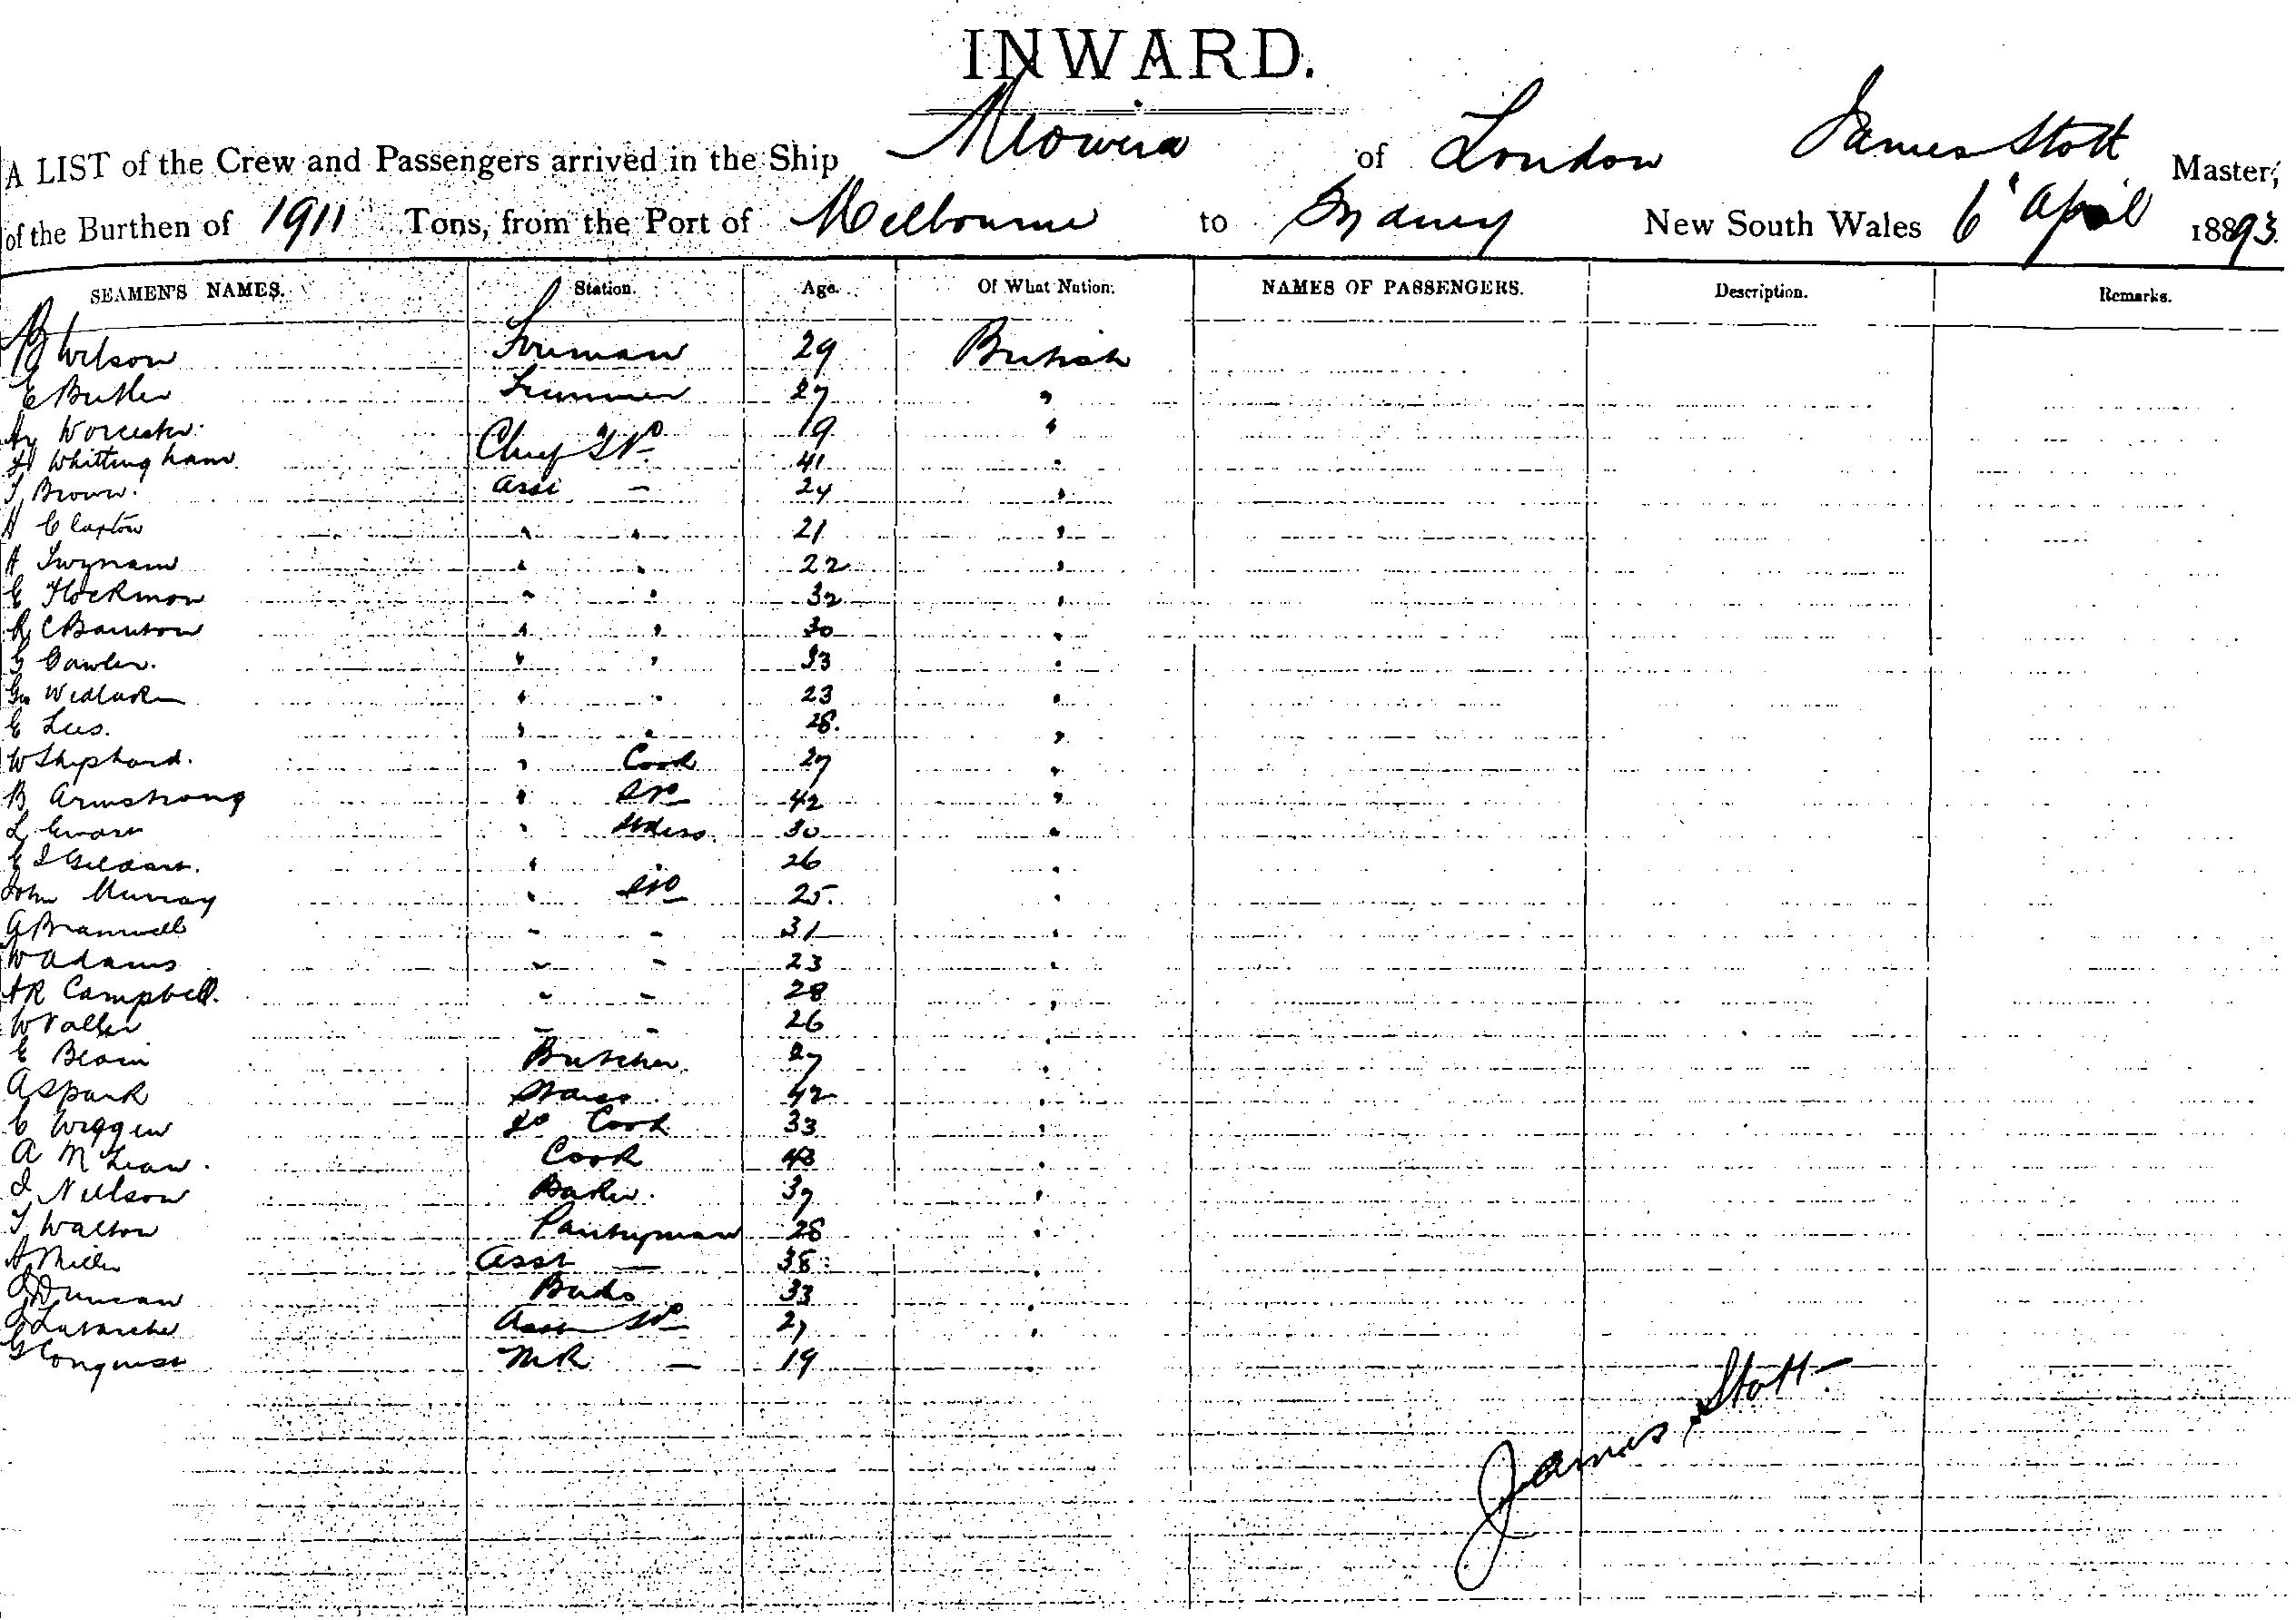 INWARD.
A LIST of the Crew and Passengers arrived in the Ship Miowera of London James Stott Master,
of the Burthen of 1911 Tons, from the Port of Melbourne to Sydney New South Wales 6 April 1893
SEAMEN'S NAMES. Station. Age. Of What Nation. NAMES OF PASSENGERS. Description. Remarks.
Wilson Fireman 29 British
E Butler Trimmer 27 "
Hy Worcester " 19 "
H Whittingham Chief Std 41 "
T Brown Assi — 24 "
H Claxton " " 21 "
A Twynam " " 22 "
E Flockmon " " 32 "
R C Bainton " " 30 "
G Gawler. " " 33 "
Geo Wedlake " " 23 "
E Lees. " " 28. "
W Shephard. " Cook 27 "
B Armstrong " 42 "
L Evans " 30 "
E 26 "
John Murray " 25. "
A Bramwell - - 31 "
W Adams - - 23 "
A R Campbell. - - 28 "
W Valler - - 26 "
E Butcher 27 "
A Spark 42 "
C Wiggin Cook 33 "
A McLean. Cook 43 "
J Neilson Baker. 37 "
T Walton Pantryman 28 "
A Miller Asst — 38 "
J Duncan 33 "
27 "
G Conquest — 19 "
James Stott